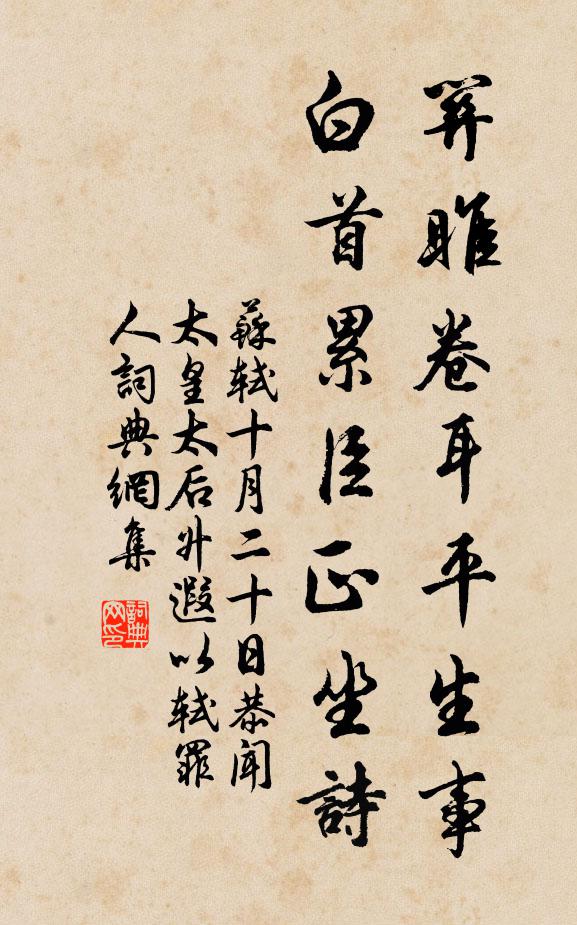 關雎卷耳平生事
白首累臣正坐詩
蘇軾十月二十日恭聞
太皇太后升遐以軾罪
人詞典網集
詞典
网印